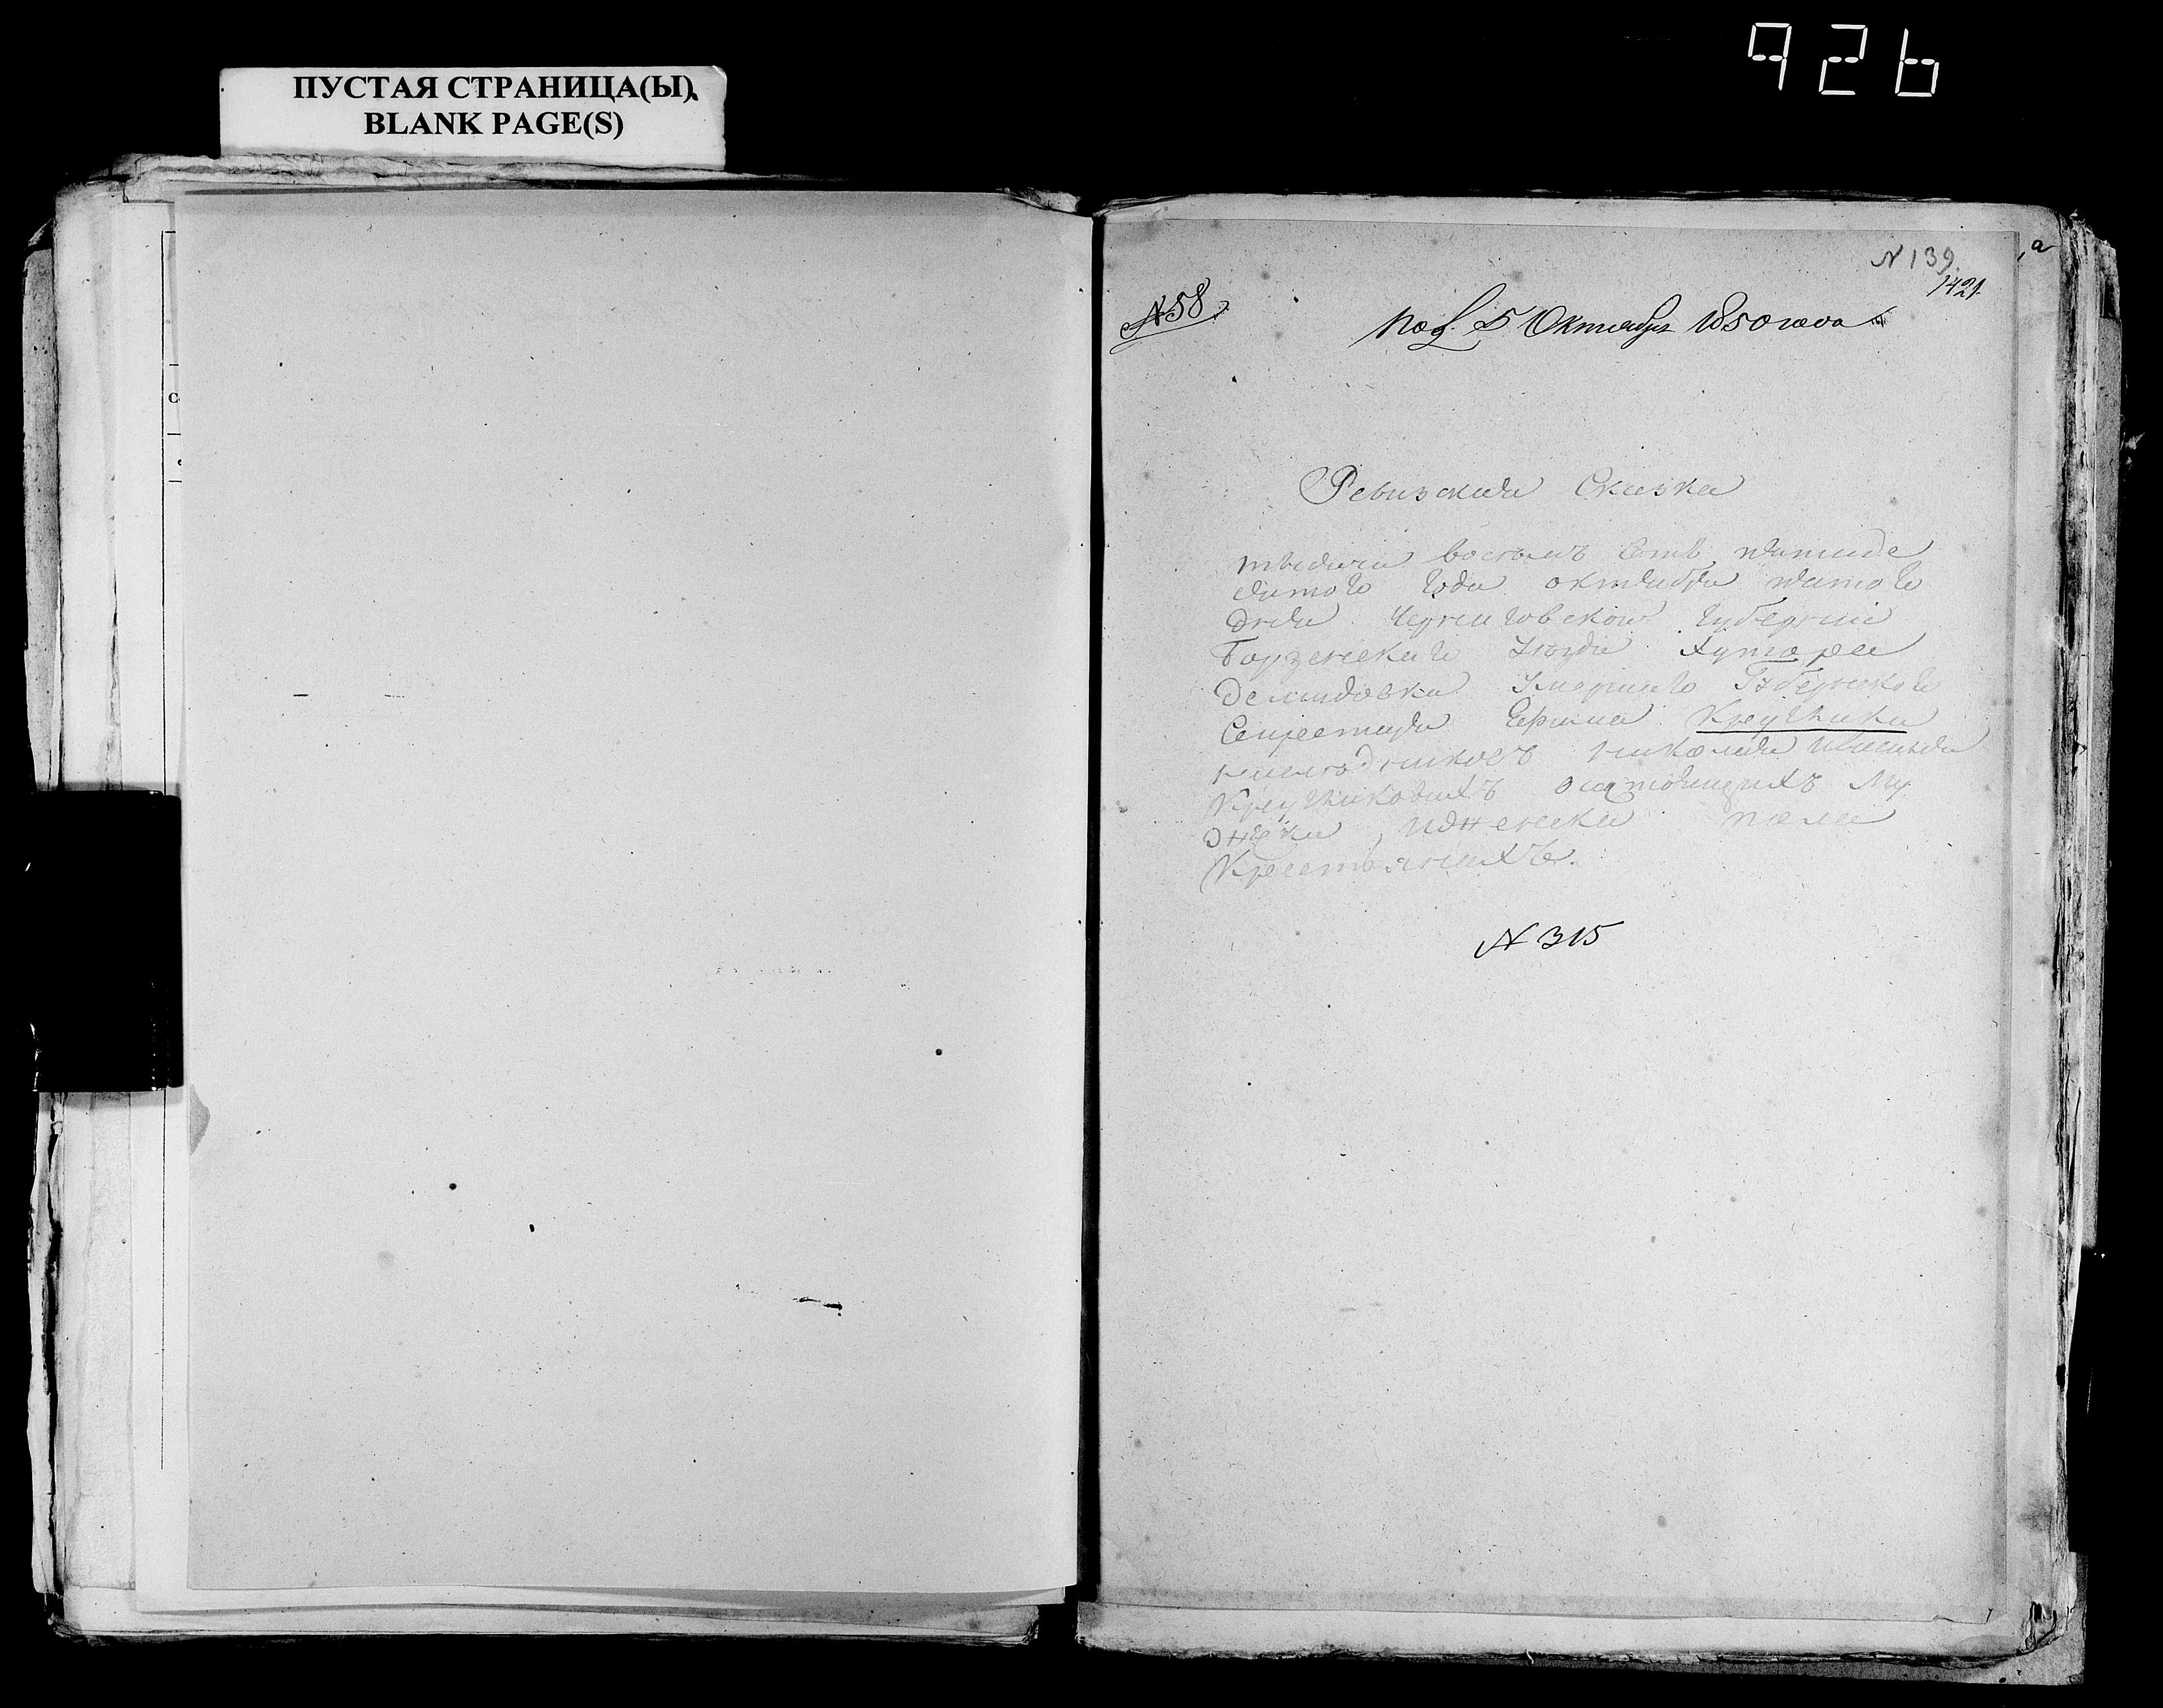 926
ПУСТАЯ СТРАНИЦА(Ы)
BLANK PAGE(S)
N 139
1421
N 58
Пол. 5 Октября 1850 года
Ревизская Сказка
тысяча восемь Сотъ пятиде
сятого года октября пятого
дня Черниговской губерніи
Борзенскаго Уезда Хутора
Демидовки Умершаго Губернского
Секретаря Ефима Краучики
николая
состоящихъ му
женска пола
Крестьянахъ.
N 315